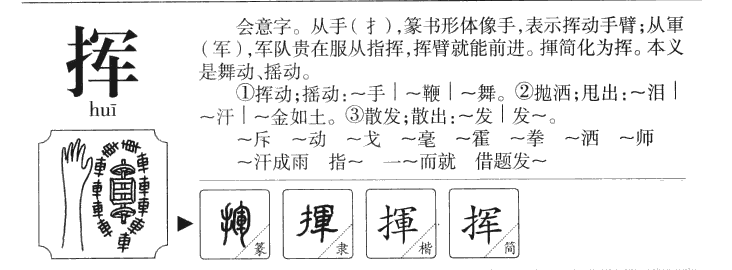 挥
huī
会意字。从手(扌),篆书形体像手,表示挥动手臂;从軍
(军),军队贵在服从指挥,挥臂就能前进。揮简化为挥。本义
是舞动、摇动。
①挥动;摇动:～手|～鞭|～舞。②抛洒;甩出:～泪|
～汗|～金如土。③散发;散出:～发|发～。
～斥 ～动 ～戈 ～毫 ～霍 ～拳 ～洒 ～师
～汗成雨 指～ 一～而就 借题发～
揮 篆 揮 隶 揮 楷 挥 简